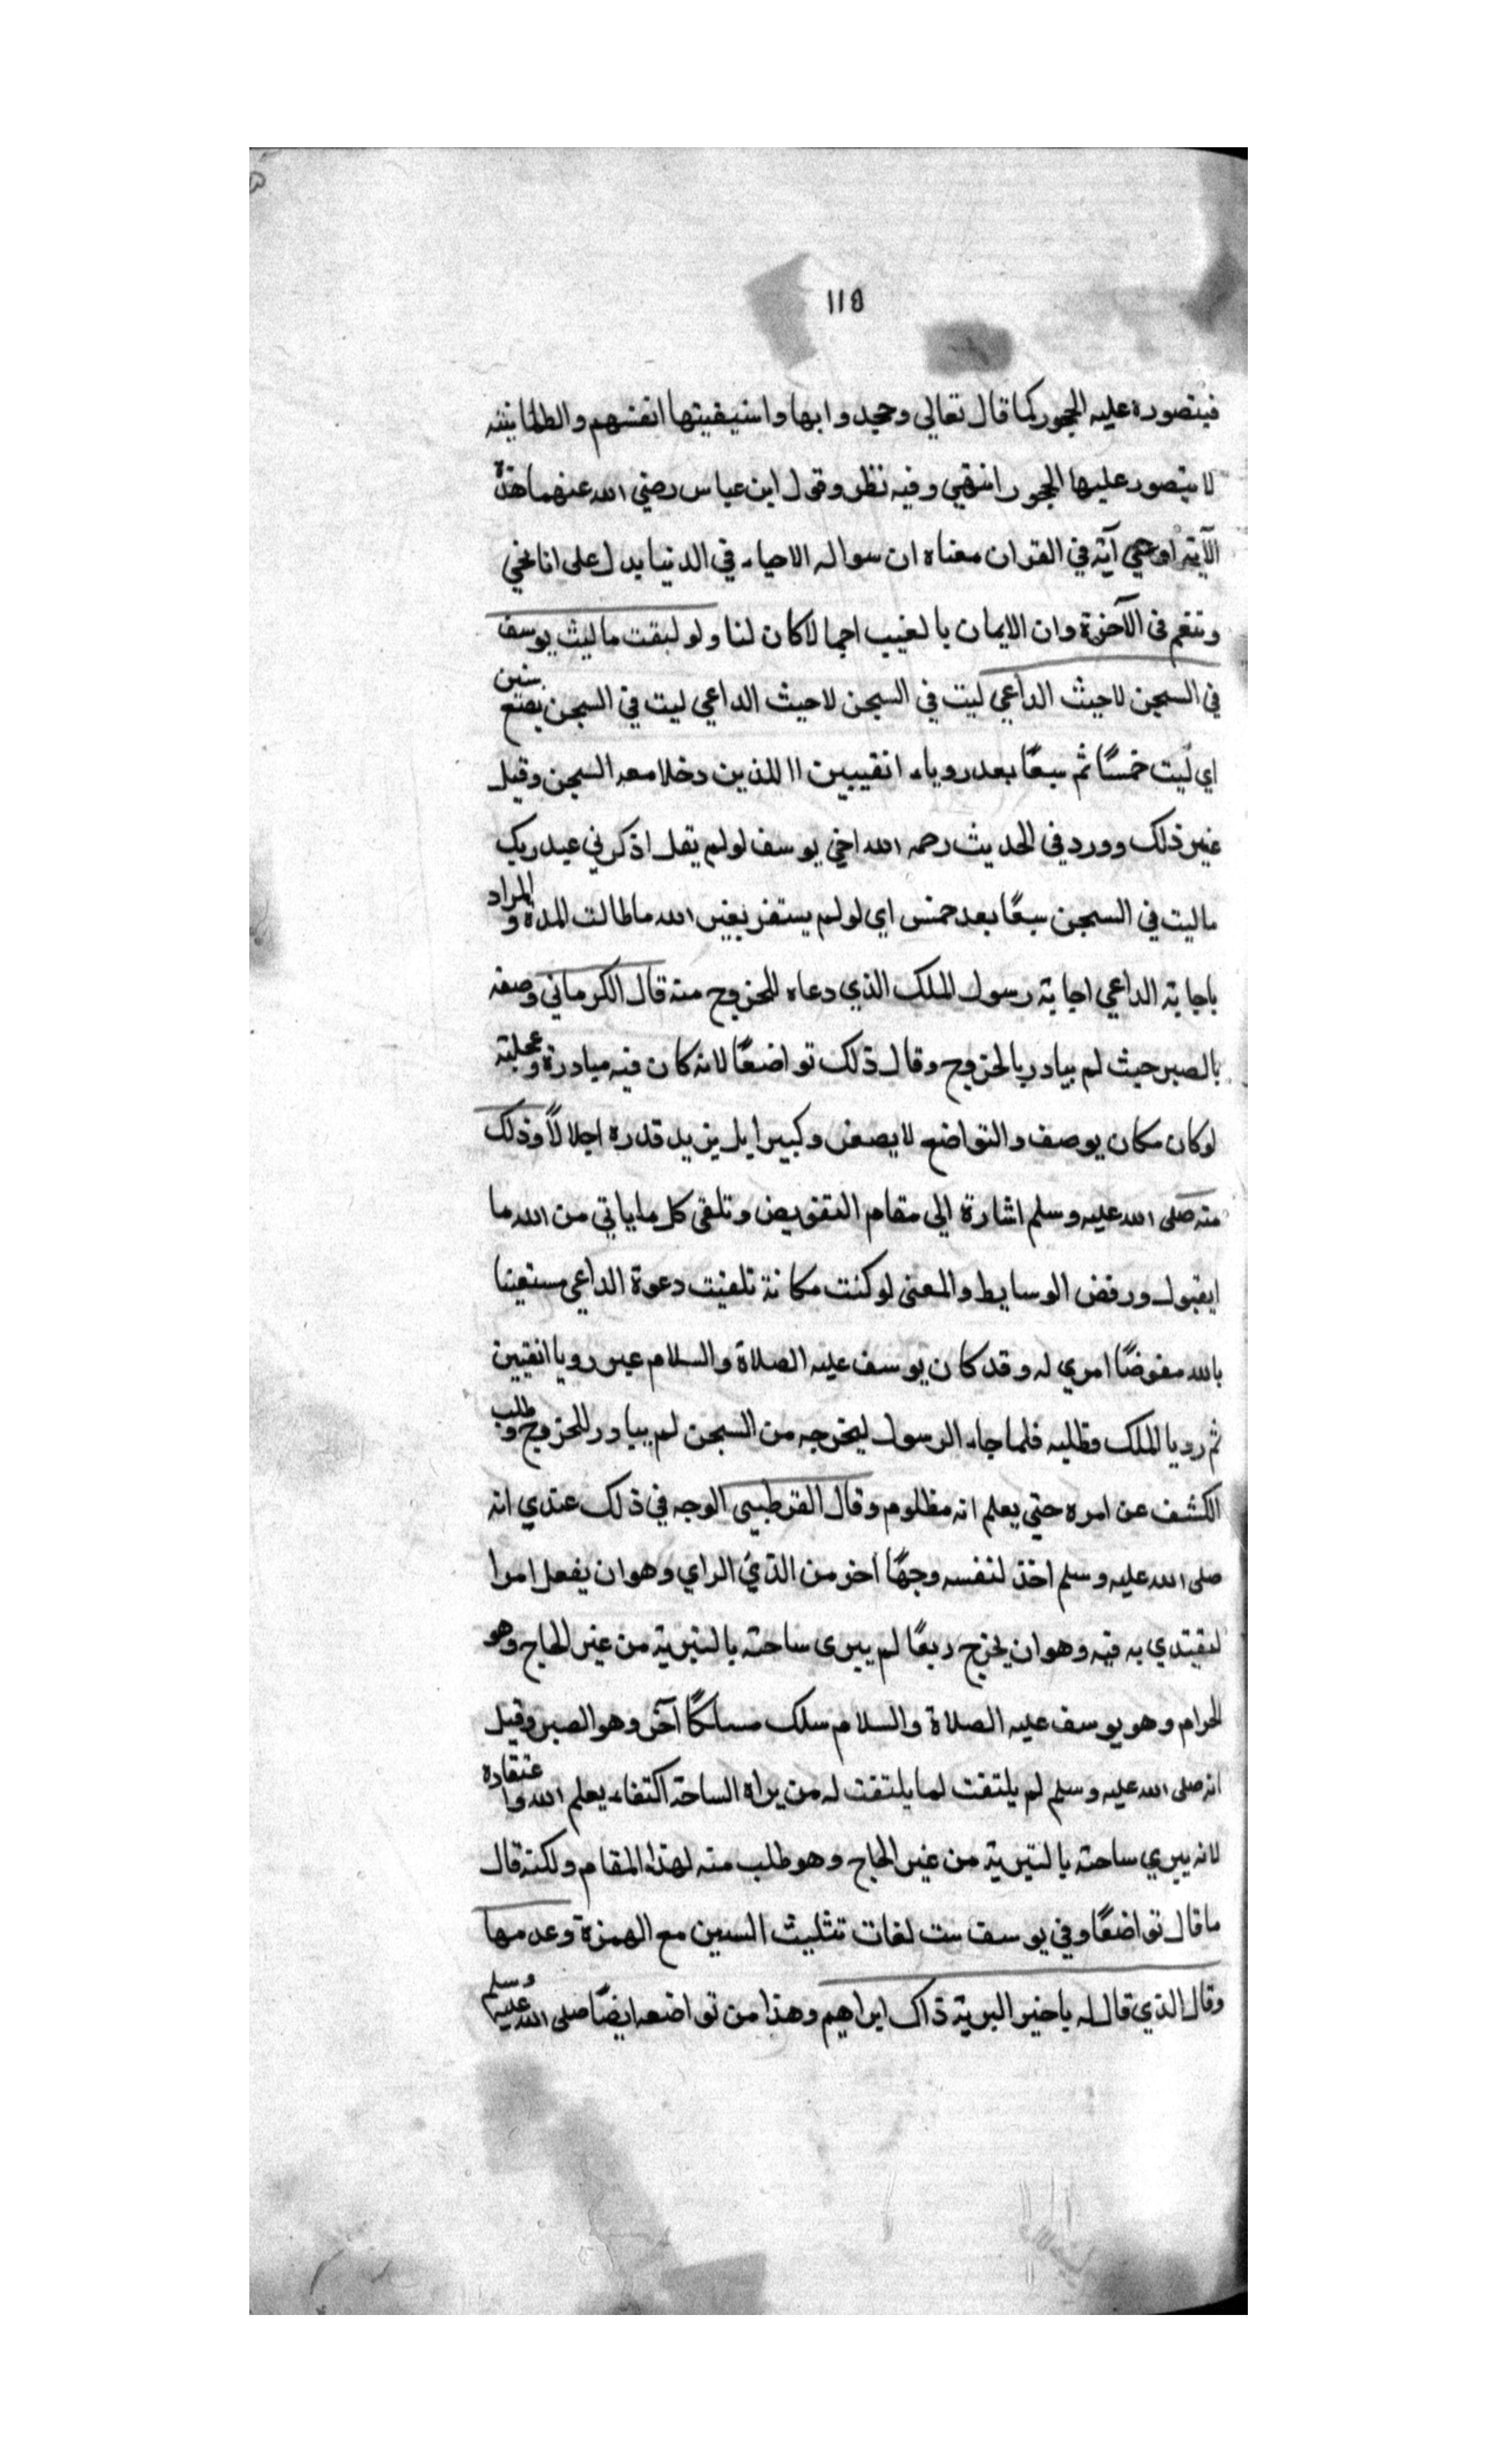 118
فيتصوره عليه الجحور كما قال تعالي وجحدوا بها واستيقنتها انفسهم والطمانينه
لا يتصور عليها الجحور انتهي وفيه نظر وقول ابن عباس رضي الله عنهما هذة
الآية ارجي آية في القران معناه ان سواله الاحياء في الدنيا يدل علي انا نحي
وننعم في الآخرة وان الايمان بالغيب اجمالا كان لنا ولو لبثت ما لبث يوسف
في السجن لاجبت الداعي لبت في السجن لاجبت الداعي لبت في السجن بضع سنين
اي لبت خمسًا ثم سبعًا بعد روياء انقيبين اا للذين دخلا معه السجن وقيل
غير ذلك وورد في الحديث رحمه الله اخي يوسف لو لم يقل اذكرني عند ربك
ما لبت في السجن سبعًا بعد خمس اي لو لم يستفز بغير الله ما طالت المدة والمراد
باجابة الداعي اجابة رسول الملك الذي دعاه للخروج منه قال الكرماني وصفه
بالصبر حيث لم يبادر بالخروج وقال ذلك تواضعًا لانه كان فيه مبادرة وعجلة
لو كان مكان يوصف والتواضع لا يصغر وكبيرا بل يزيد قدره اجلالاً وذلك
منه صلى الله عليه وسلم اشارة الي مقام التفويض وتلقي كل ما ياتي من الله ما
ايقبول ورفض الوسايط والمعنى لو كنت مكانة تلقيت دعوة الداعي مستعينا
بالله مفوضًا امري له وقد كان يوسف عليه الصلاة والسلام عبر رويا انقيين
ثم رديا الملك وطلبه فلما جاء الرسول ليخرجه من السجن لم يبادر للخروج وطلب
الكشف عن امره حتي يعلم انه مظلوم وقال القرطبي الوجه في ذلك عندي انه
صلى الله عليه وسلم اخذ لنفسه وجهًا اخر من الذي الراي وهو ان يفعل امرا
ليقتدي به فيه وهو ان يخرج ربعًا لم يبرى ساحته بالتبرية من غير الحاح وهو
الحرام وهو يوسف عليه الصلاة والسلام سلك مسلكًا آخر وهو الصبر وقيل
انه صلى الله عليه وسلم لم يلتفت لما يلتفت له من براه الساحة اكتفاء بعلم الله واعتقاده
لانه يبري ساحته بالتبرية من غير الحاح وهو طلب منه لهذا المقام ولكنه قال
ما قال تواضعًا وفي يوسف ست لغات تثليث السين مع الهمزة وعدمها
وقال الذي قال له يا خير البرية ذاك ابراهيم وهذا من تواضعه ايضًا صلى الله عليه وسلم